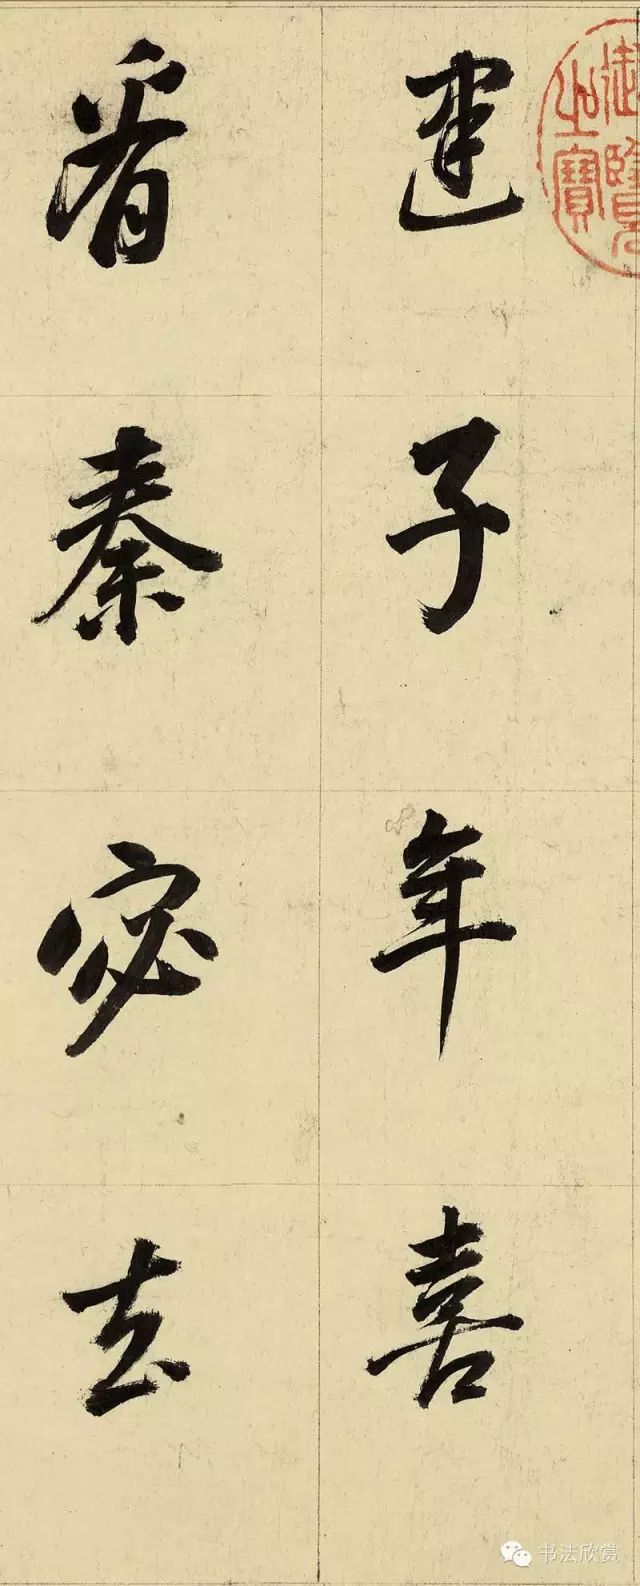 建子年喜
看秦宓去
御覽之寶
书法欣赏